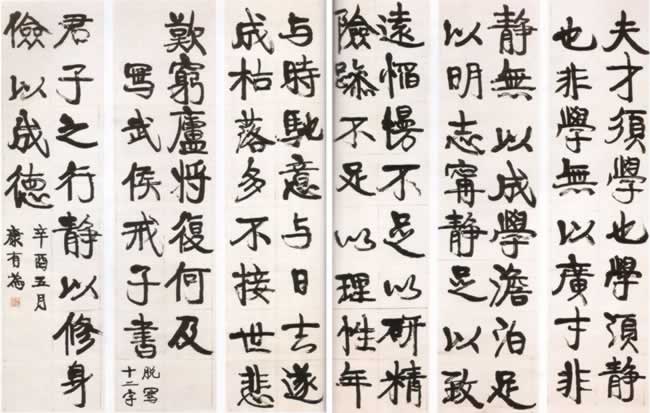 夫才須學也學須静
也非學無以廣才非
静無以成學澹泊足
以明志甯静足以致
遠慆慢不足以研精
險躁不足以理性年
与時馳意与日去遂
成枯落多不接世悲
歎窮廬将復何及
寫武侯戒子書
脱寫
十二字
君子之行静以修身
儉以成德
辛酉五月
康有為